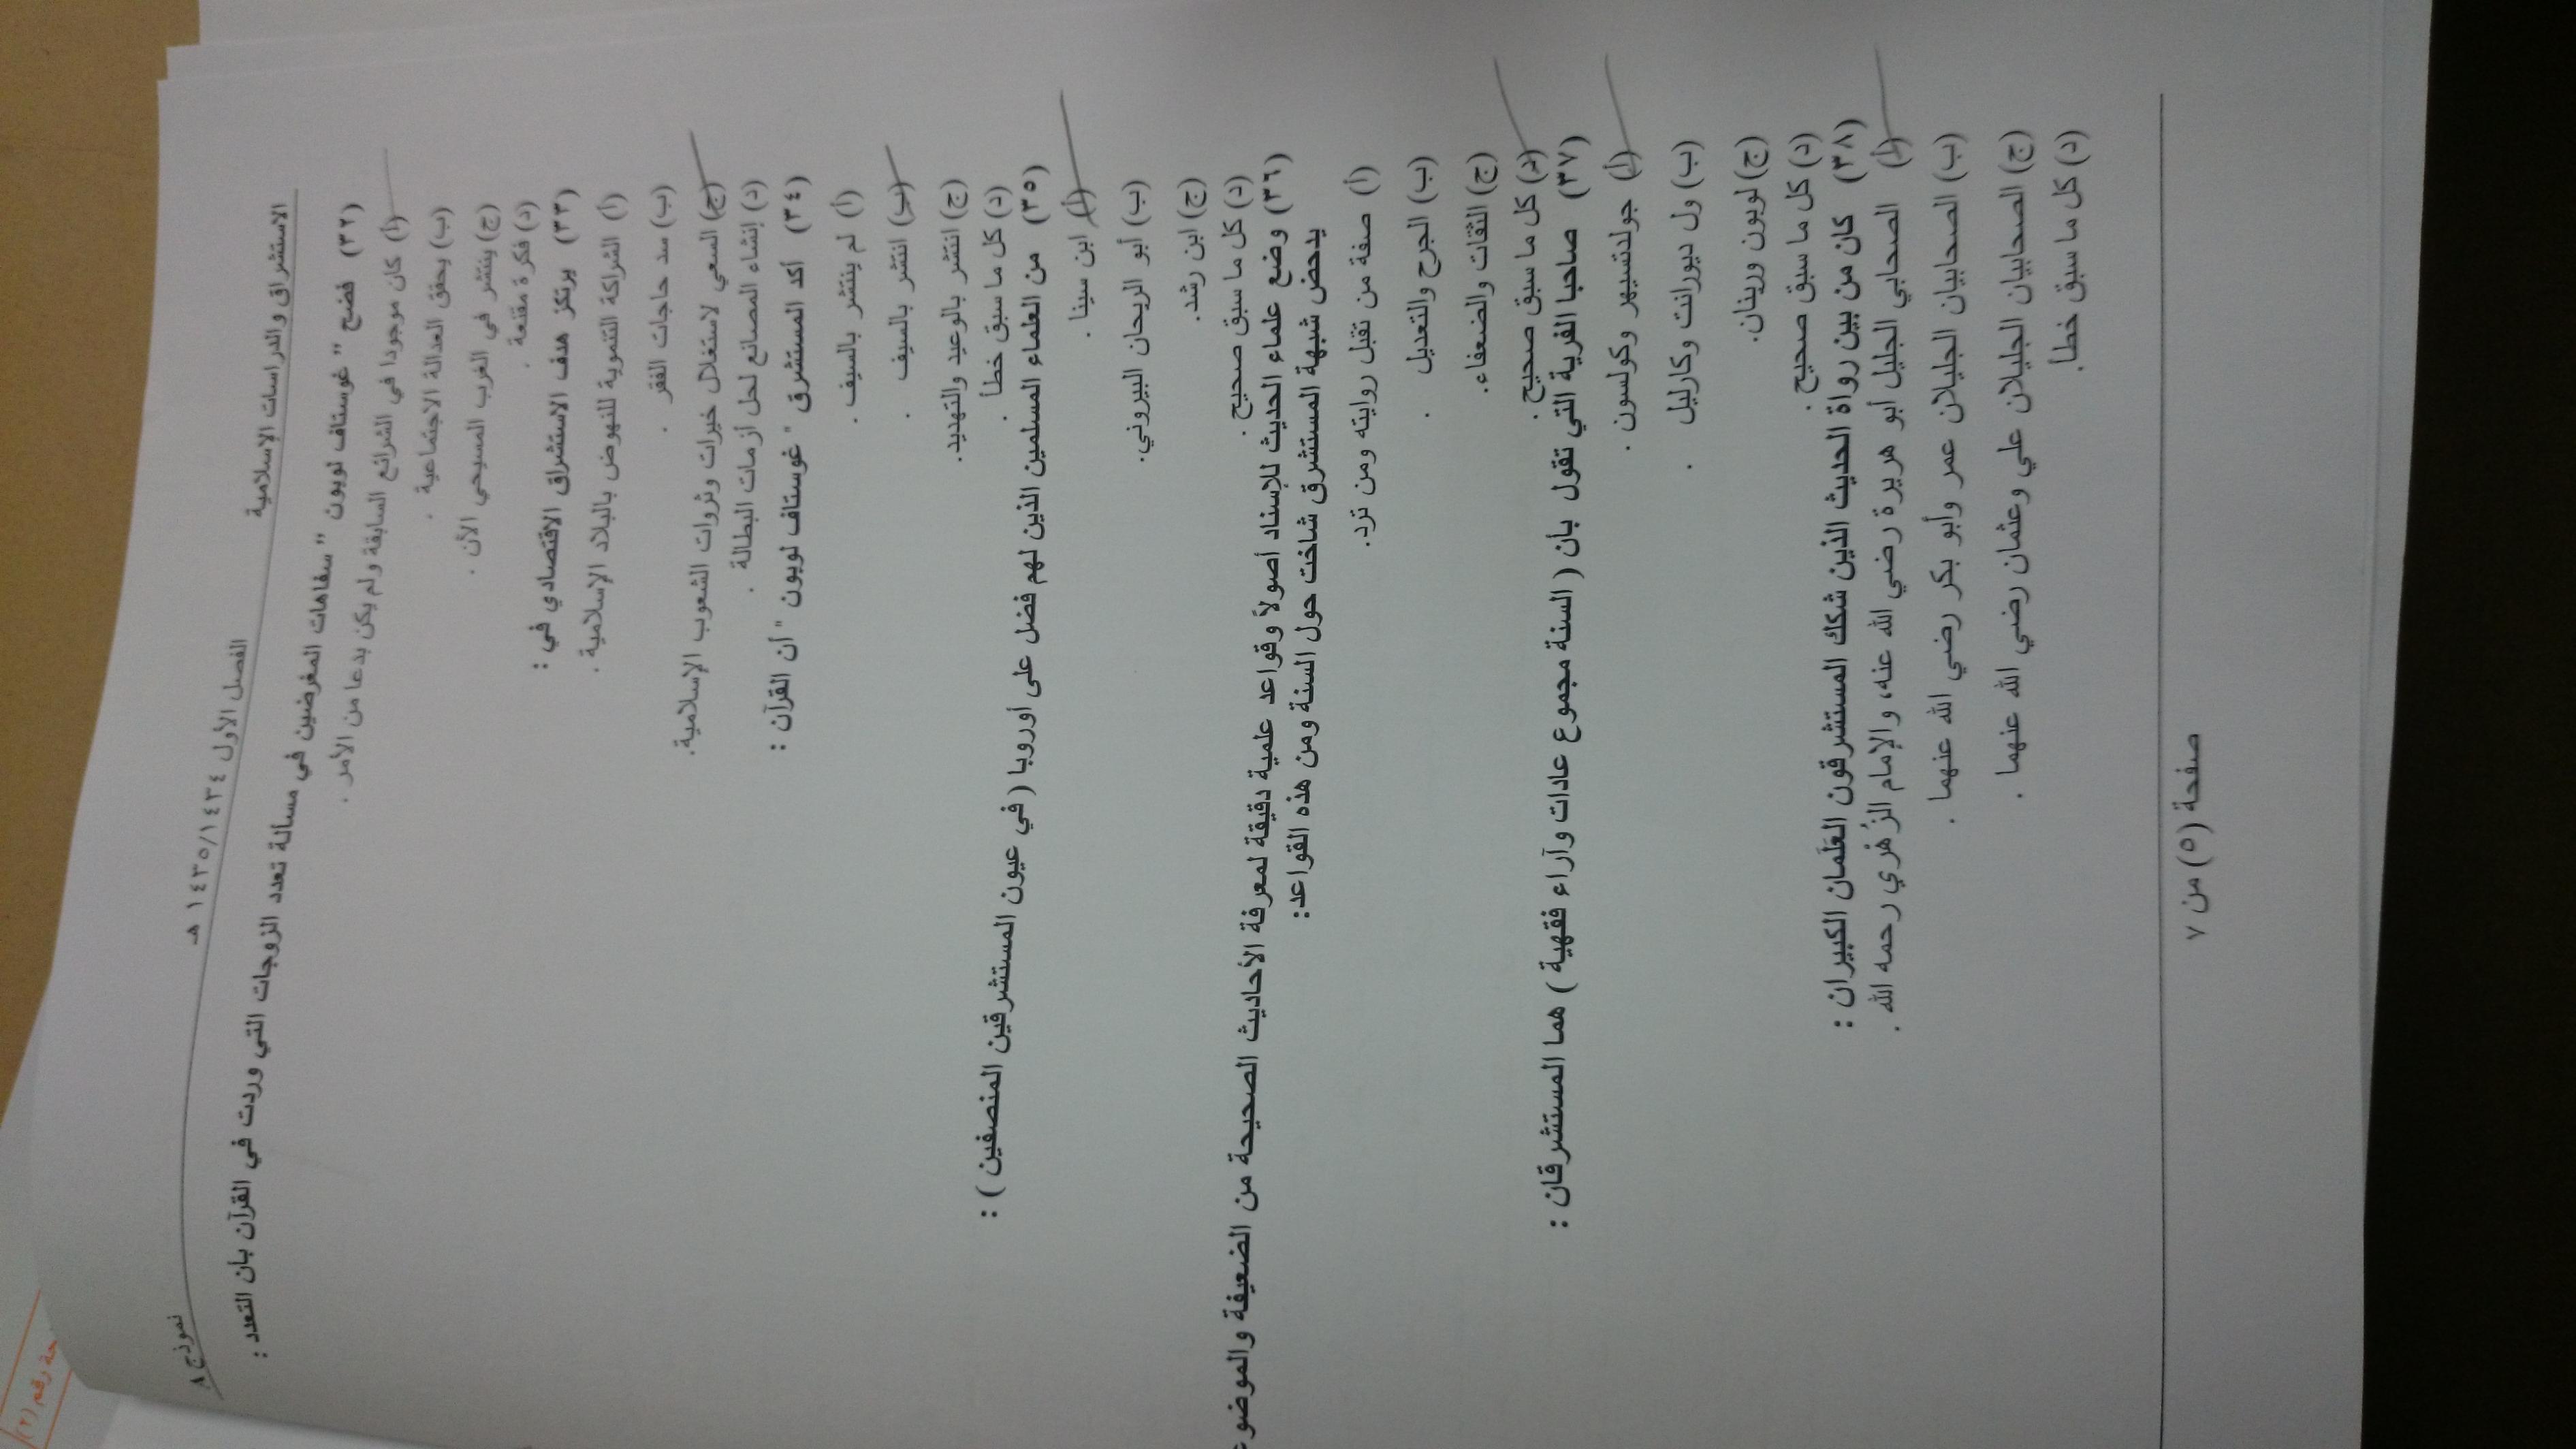 الاستشراق والدراسات الإسلامية
الفصل الأول ١٤٣٤/١٤٣٥ هـ
نموذج ٨
٣٢) فضح " غوستاف لوبون " سفاهات المغرضين في مسألة تعدد الزوجات التي وردت في القرآن بان التعدد :
(أ) كان موجودا في الشرائع السابقة ولم يكن بدعا من الأمر .
(ب) يحقق العدالة الاجتماعية .
(ج) ينتشر في الغرب المسيحي الآن .
(د) فكرة مقنعة .
٣٣) يرتكز هدف الاستشراق الاقتصادي في :
(أ) الشراكة التنموية للنهوض بالبلاد الإسلامية .
(ب) سد حاجات الفقر .
(ج) السعي لاستغلال خيرات وثروات الشعوب الإسلامية.
(د) إنشاء المصانع لحل أزمات البطالة .
٣٤) أكد المستشرق " غوستاف لوبون " أن القرآن :
(أ) لم ينتشر بالسيف .
(ب) انتشر بالسيف .
(ج) انتشر بالوعيد والتهديد.
(د) كل ما سبق خطأ .
٣٥) من العلماء المسلمين الذين لهم فضل على أوروبا ( في عيون المستشرقين المنصفين ) :
(أ) ابن سينا .
(ب) أبو الريحان البيروني.
(ج) ابن رشد.
(د) كل ما سبق صحيح .
٣٦) وضع علماء الحديث للإسناد أصولاً وقواعد علمية دقيقة لمعرفة الأحاديث الصحيحة من الضعيفة
يدحض شبهة المستشرق شاخت حول السنة ومن هذه القواعد:
(أ) صفة من تقبل روايته ومن ترد.
(ب) الجرح والتعديل .
(ج) الثقات والضعفاء.
(د) كل ما سبق صحيح .
٣٧) صاحبا الفرية التي تقول بأن ( السنة مجموع عادات وآراء فقهية ) هما المستشرقان :
(أ) جولدتسيهر وكولسون .
(ب) ول ديورانت وكارليل .
(ج) لوبون ورينان.
(د) كل ما سبق صحيح .
٣٨) كان من بين رواة الحديث الذين شكك المستشرقون العَلَمان الكبيران :
(أ) الصحابي الجليل أبو هريرة رضي الله عنه، والإمام الزُهْري رحمه الله .
(ب) الصحابيان الجليلان عمر وأبو بكر رضي الله عنهما .
(ج) الصحابيان الجليلان علي وعثمان رضي الله عنهما .
(د) كل ما سبق خطأ.
صفحة (٥) من ٧